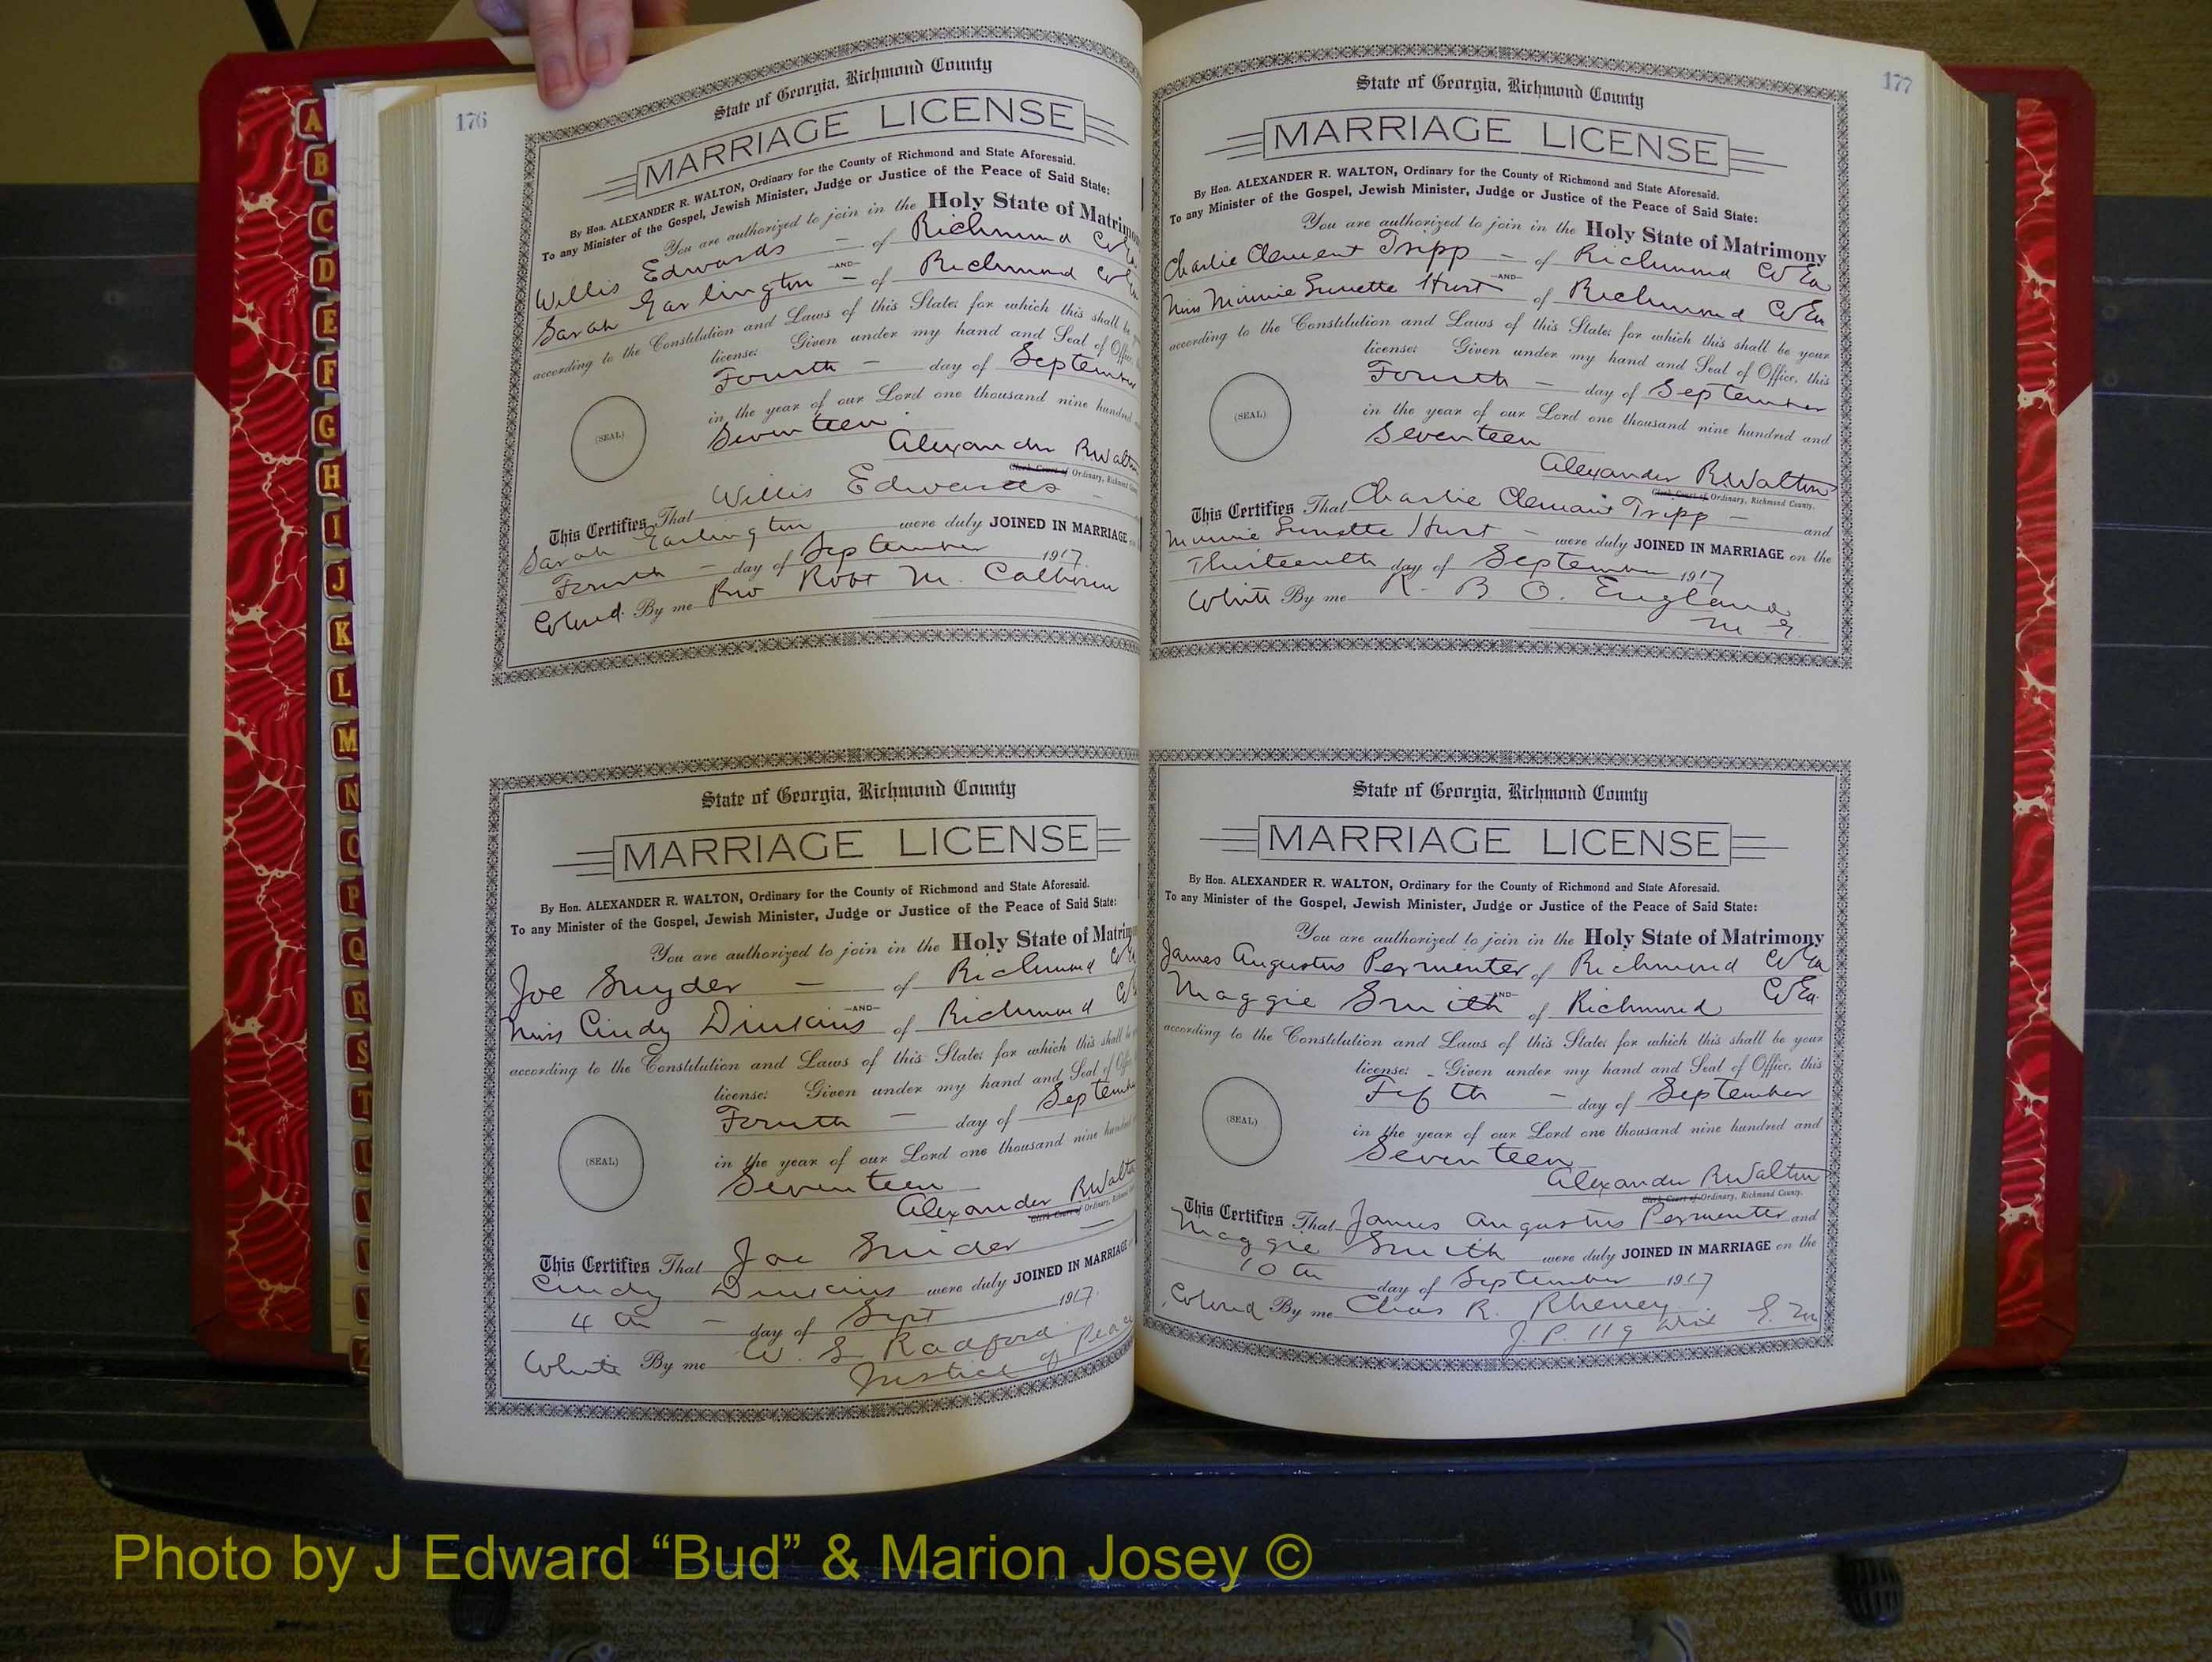 A
B
C
D
E
F
G
H
I
J
K
L
M
N
O
P
Q
R
S
T
U
V
176
State of Georgia, Richmond County
MARRIAGE LICENSE
By Hon. ALEXANDER R. WALTON, Ordinary for the County of Richmond and State Aforesaid.
To any Minister of the Gospel, Jewish Minister, Judge or Justice of the Peace of Said State:
You are authorized to join in the Holy State of Matrimon
Willis Edwards - of Richmond Co
-AND-
Sarah Earlington - of Richmond Co
according to the Constitution and Laws of this State; for which this shall be
license: Given under my hand and Seal of Office,
Fourth - day of September
in the year of our Lord one thousand nine hundred
(SEAL)
Seventeen
Alexander R Walton
Clerk Court of Ordinary, Richmond
This Certifies That Willis Edwards -
Sarah Earlington were duly JOINED IN MARRIAGE
Fourth - day of September 1917.
Colored. By me Rev Robt M. Calhoun
State of Georgia, Richmond County
MARRIAGE LICENSE
By Hon. ALEXANDER R. WALTON, Ordinary for the County of Richmond and State Aforesaid.
To any Minister of the Gospel, Jewish Minister, Judge or Justice of the Peace of Said State:
You are authorized to join in the Holy State of Matrim
Joe Snyder - of Richmond
-AND-
Miss Cindy Dinkins of Richmond
according to the Constitution and Laws of this State; for which this shall be
license: Given under my hand and Seal of
Fourth - day of Septemb
in the year of our Lord one thousand nine hundred
(SEAL)
Seventeen
Alexander R Walt
Clerk Court of Ordinary,
This Certifies That Joe Snider
Cindy Dinkins were duly JOINED IN MARRIAGE
4th - day of Sept 1917.
White By me W. S. Radford
Justice of Peace
177
State of Georgia, Richmond County
MARRIAGE LICENSE
By Hon. ALEXANDER R. WALTON, Ordinary for the County of Richmond and State Aforesaid.
To any Minister of the Gospel, Jewish Minister, Judge or Justice of the Peace of Said State:
You are authorized to join in the Holy State of Matrimony
Charlie Clement Tripp - of Richmond Co Ga
-AND-
Miss Minnie Hurst of Richmond Co Ga
according to the Constitution and Laws of this State; for which this shall be your
license: Given under my hand and Seal of Office, this
Fourth - day of September
in the year of our Lord one thousand nine hundred and
(SEAL)
Seventeen
Alexander R Walton
Clerk Court of Ordinary, Richmond County.
This Certifies That Charlie Clemant Tripp - and
Minnie Hurst - were duly JOINED IN MARRIAGE on the
Thirteenth day of September 1917
White By me R. B. O. England
M G.
State of Georgia, Richmond County
MARRIAGE LICENSE
By Hon. ALEXANDER R. WALTON, Ordinary for the County of Richmond and State Aforesaid.
To any Minister of the Gospel, Jewish Minister, Judge or Justice of the Peace of Said State:
You are authorized to join in the Holy State of Matrimony
James Augustus Permenter of Richmond Co Ga
-AND-
Maggie Smith of Richmond Co Ga.
according to the Constitution and Laws of this State; for which this shall be your
license: Given under my hand and Seal of Office, this
Fifth - day of September
in the year of our Lord one thousand nine hundred and
(SEAL)
Seventeen
Alexander R Walton
Clerk Court of Ordinary, Richmond County.
This Certifies That James Augustus Permenter and
Maggie Smith were duly JOINED IN MARRIAGE on the
10th day of September 1917
Colored By me Chas R. Rheney
J. P. 119 Dist G. M
Photo by J Edward “Bud” & Marion Josey ©